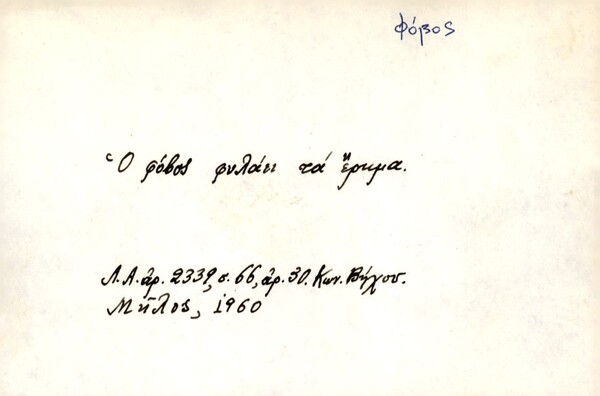 Φόβος
Ὁ φόβος φυλάει τά ἔρημα.
Λ.Α. ἀρ. 2339, σ. 66, ἀρ. 30. Κων. Βῆχου.
Μῆλος, 1960